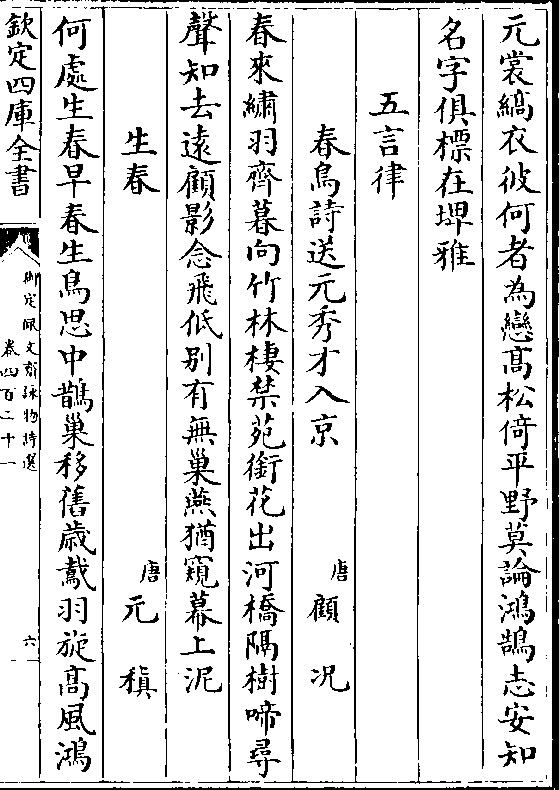 元裳縞衣彼何者為戀髙松倚平野莫論鴻鵠志安知
名字俱標在埤雅
五言律
春鳥詩送元秀才入京
唐 顧况
春來繡羽齊暮向竹林棲禁苑銜花出河橋隔樹啼尋
聲知去遠顧影念飛低别有無巢燕猶窺幕上泥
生春
唐 元稹
何處生春早春生鳥思中鵲巢移舊歳鳶羽旋髙風鴻
欽定四庫全書
御定佩文齋詠物詩選
卷四百二十一
六